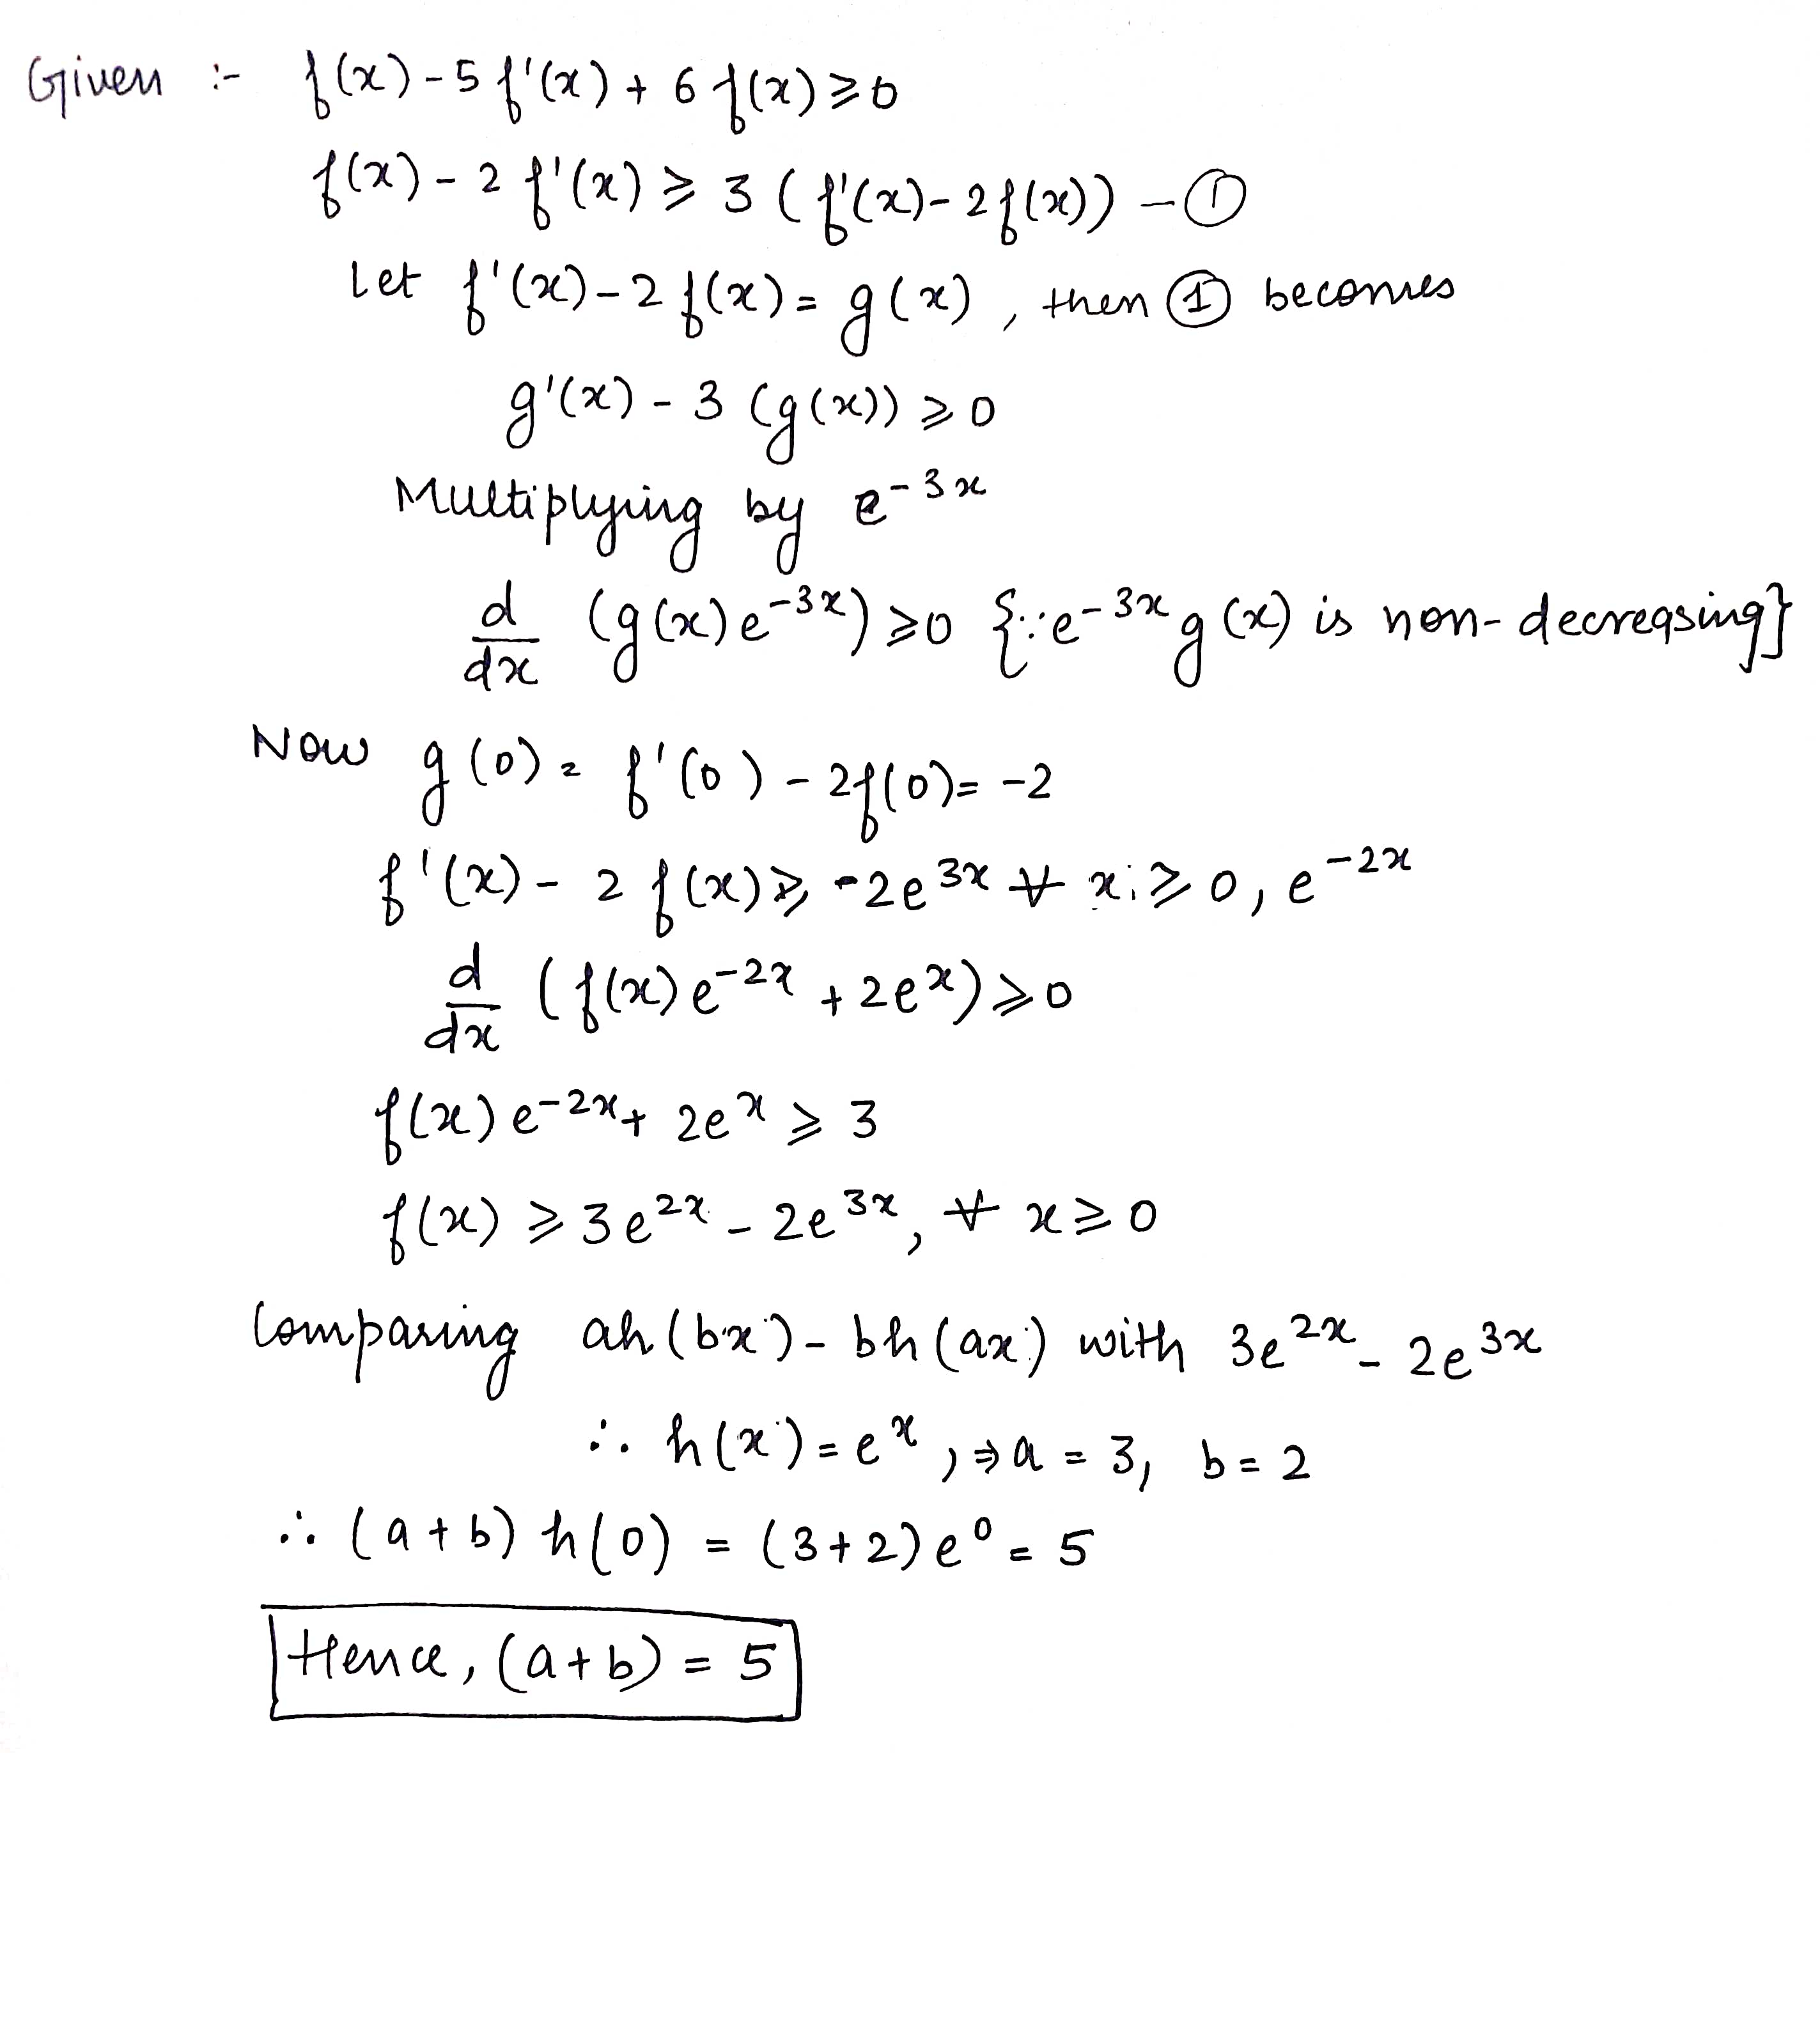 Given :- f(x) - 5 f'(x) + 6 f(x) ⩾ 0
f(x) - 2 f'(x) ⩾ 3 (f'(x) - 2f(x)) - ①
Let f'(x) - 2 f(x) = g(x), then ① becomes
g'(x) - 3 (g(x)) ⩾ 0
Multiplying by e^{-3x}
d/dx (g(x) e^{-3x}) ⩾ 0 {∵ e^{-3x} g(x) is non-decreasing}
Now g(0) = f'(0) - 2f(0) = -2
f'(x) - 2 f(x) ⩾ -2e^{3x} ∀ x ⩾ 0, e^{-2x}
d/dx (f(x) e^{-2x} + 2e^{x}) ⩾ 0
f(x) e^{-2x} + 2e^{x} ⩾ 3
f(x) ⩾ 3e^{2x} - 2e^{3x}, ∀ x ⩾ 0
Comparing ah(bx) - bh(ax) with 3e^{2x} - 2e^{3x}
∴ h(x) = e^{x}, ⇒ a = 3, b = 2
∴ (a+b) h(0) = (3+2) e^{0} = 5
Hence, (a+b) = 5